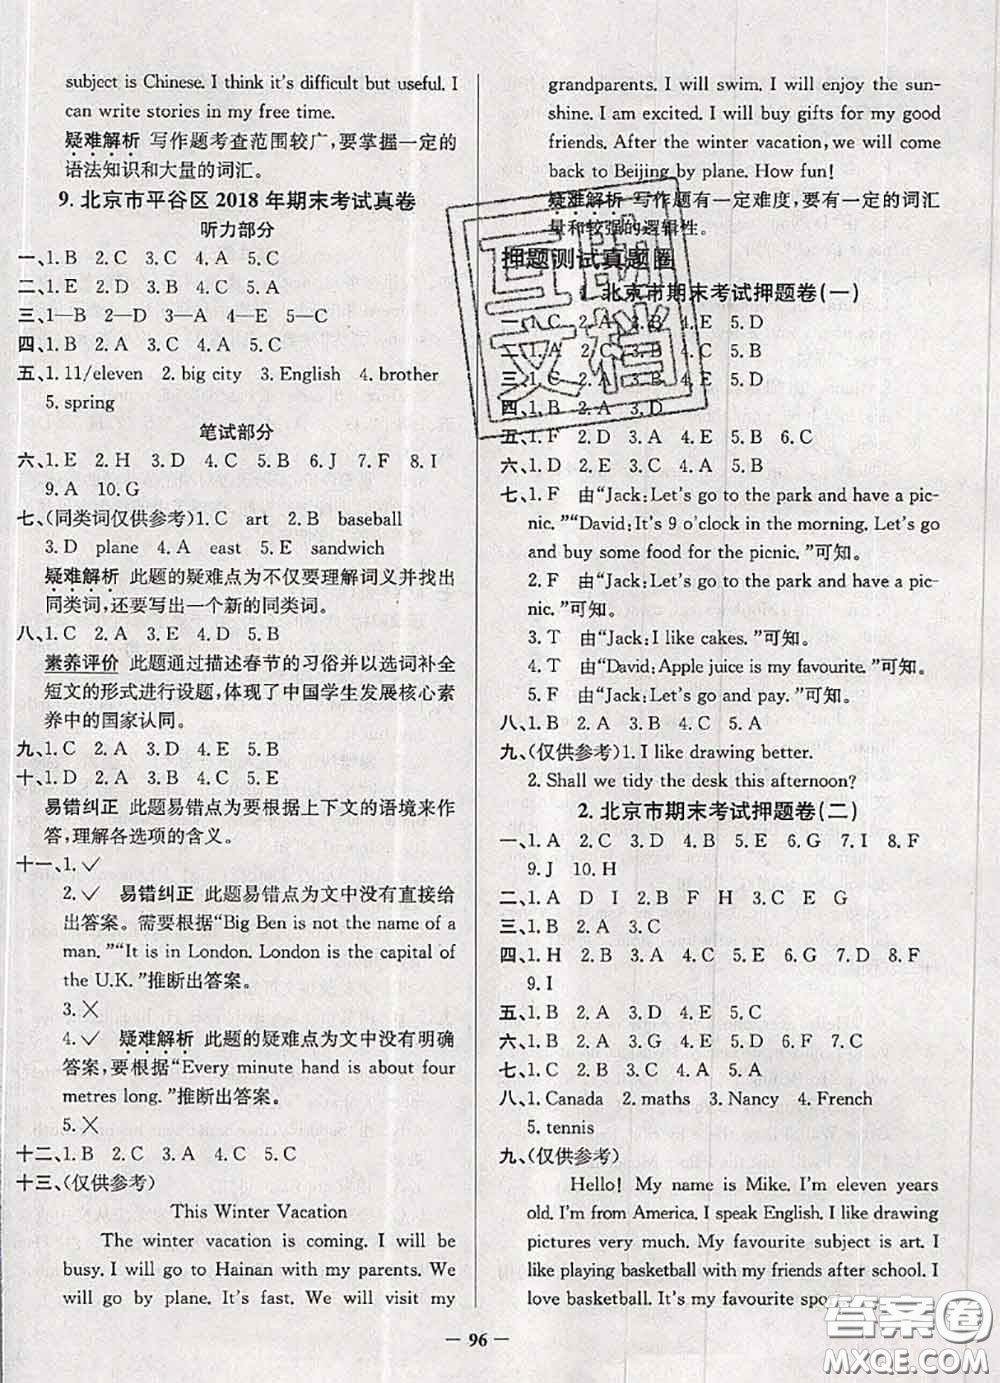 subject is Chinese. I think it's difficult but useful. I
can write stories in my free time.
疑难解析 写作题考查范围较广,要掌握一定的
语法知识和大量的词汇。
9. 北京市平谷区 2018 年期末考试真卷
听力部分
一、1. B 2. C 3. C 4. A 5. C
二、1. E 2. A 3. D 4. B 5. C
三、1—B 2—D 3—A 4—C
四、1. B 2. A 3. A 4. A 5. C
五、1. 11/eleven 2. big city 3. English 4. brother
5. spring
笔试部分
六、1. E 2. H 3. D 4. C 5. B 6. J 7. F 8. I
9. A 10. G
七、(同类词仅供参考)1. C art 2. B baseball
3. D plane 4. A east 5. E sandwich
疑难解析 此题的疑难点为不仅要理解词义并找出
同类词,还要写出一个新的同类词。
八、1. C 2. A 3. E 4. D 5. B
素养评价 此题通过描述春节的习俗并以选词补全
短文的形式进行设题,体现了中国学生发展核心素
养中的国家认同。
九、1. C 2. A 3. D 4. E 5. B
十、1. D 2. A 3. B 4. C 5. E
易错纠正 此题易错点为要根据上下文的语境来作
答,理解各选项的含义。
十一、1. ✓
2. ✓ 易错纠正 此题易错点为文中没有直接给
出答案。需要根据“Big Ben is not the name of a
man.”“It is in London. London is the capital of
the U.K.”推断出答案。
3. ×
4. ✓ 疑难解析 此题的疑难点为文中没有明确
答案,要根据“Every minute hand is about four
metres long.”推断出答案。
5. ×
十二、1. B 2. B 3. C 4. A 5. C
十三、(仅供参考)
This Winter Vacation
The winter vacation is coming. I will be
busy. I will go to Hainan with my parents. We
will go by plane. It's fast. We will visit my
grandparents. I will swim. I will enjoy the sun-
shine. I am excited. I will buy gifts for my good
friends. After the winter vacation, we will come
back to Beijing by plane. How fun!
疑难解析 写作题有一定难度,要有一定的词汇
量和较强的逻辑性。
押题测试真题圈
1. 北京市期末考试押题卷(一)
一、1. C 2. A 3. B 4. E 5. D
二、1. A 2. C 3. B 4. C 5. A
三、1. C 2. A 3. B 4. E 5. D
四、1. B 2. A 3. D
五、1. F 2. D 3. A 4. E 5. B 6. C
六、1. D 2. E 3. B 4. A 5. C
七、1. F 由“Jack: Let's go to the park and have a pic-
nic.”“David: It's 9 o'clock in the morning. Let's go
and buy some food for the picnic.”可知。
2. F 由“Jack: Let's go to the park and have a pic-
nic.”可知。
3. T 由“Jack: I like cakes.”可知。
4. T 由“David: Apple juice is my favourite.”可知。
5. F 由“Jack: Let's go and pay.”可知。
八、1. B 2. A 3. B 4. C 5. A
九、(仅供参考)1. I like drawing better.
2. Shall we tidy the desk this afternoon?
2. 北京市期末考试押题卷(二)
一、1. A 2. C 3. D 4. B 5. E 6. G 7. I 8. F
9. J 10. H
二、1. A D I 2. B F H 3. C E G
三、1. B 2. A 3. C
四、1. H 2. B 3. C 4. A 5. G 6. E 7. D 8. F
9. I
五、1. B 2. A 3. D 4. E 5. C
六、1. B 2. A 3. G 4. E 5. D 6. F 7. C
七、1. C 2. B 3. A 4. B 5. C
八、1. Canada 2. maths 3. Nancy 4. French
5. tennis
九、(仅供参考)
Hello! My name is Mike. I'm eleven years
old. I'm from America. I speak English. I like drawing
pictures very much. My favourite subject is art. I
like playing basketball with my friends after school. I
love basketball. It's my favourite
— 96 —
答案圈
MXQE.COM